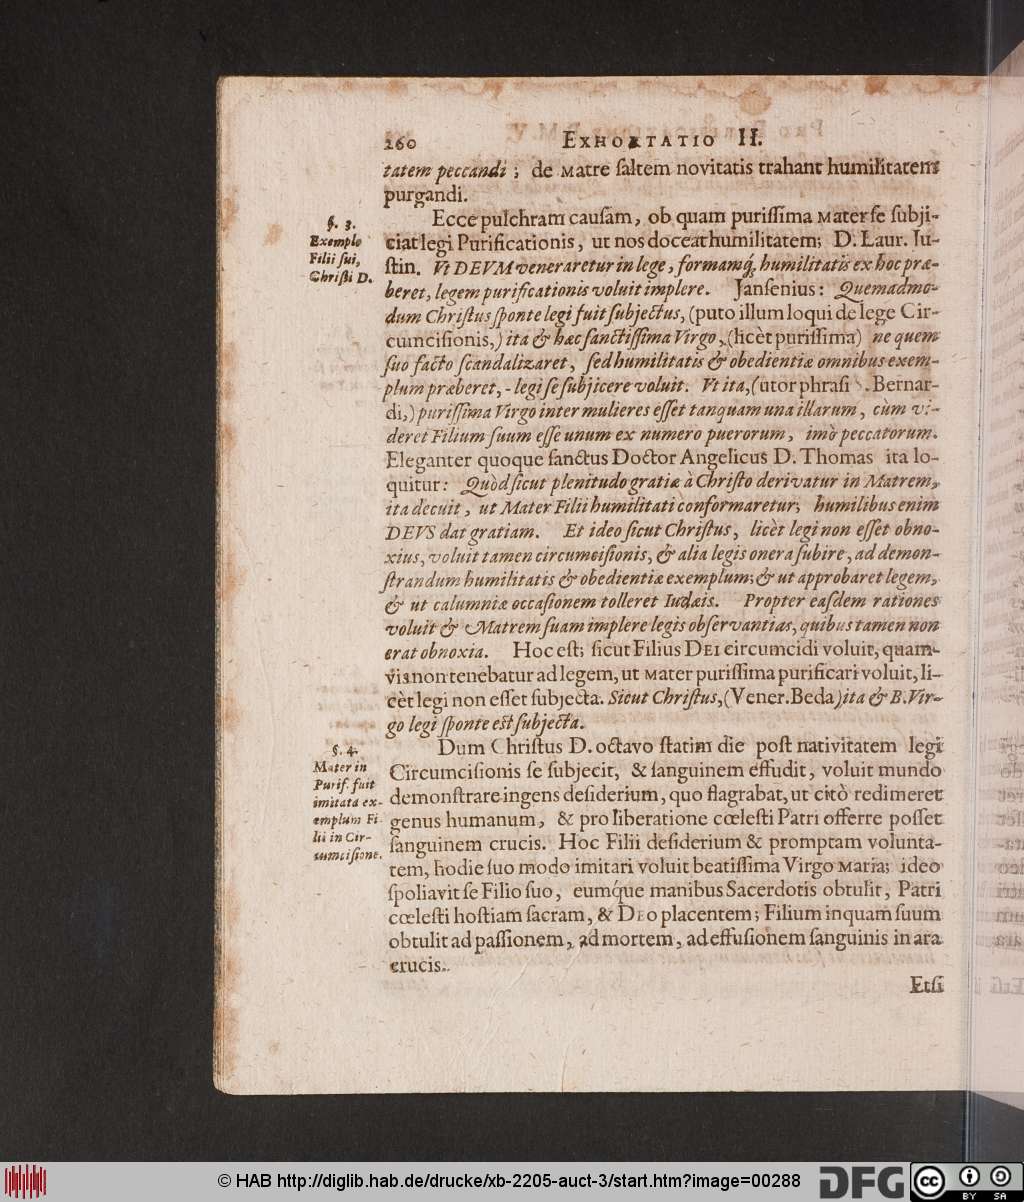 260 EXHORTATIO II.
tatem peccandi; de Matre saltem novitatis trahant humilitatem
purgandi.
§. 3.
Exemplo
Filii sui,
Christi D.
Ecce pulchram causam, ob quam purissima Mater se subji-
ciat legi Purificationis, ut nos doceat humilitatem; D. Laur. Ju-
stin. Vt DEVM veneraretur in lege, formamq́, humilitatis ex hoc præ-
beret, legem purificationis voluit implere. Jansenius: Quemadmo-
dum Christus sponte legi fuit subjectus, (puto illum loqui de lege Cir-
cumcisionis,) ita & hæc sanctissima Virgo, (licèt purissima) ne quem
suo facto scandalizaret, sed humilitatis & obedientiæ omnibus exem-
plum præberet, legi se subjicere voluit. Vt ita, (utor phrasi S. Bernar-
di,) purissima Virgo inter mulieres esset tanquam una illarum, cùm vi-
deret Filium suum esse unum ex numero puerorum, imò peccatorum.
Eleganter quoque sanctus Doctor Angelicus D. Thomas ita lo-
quitur: Quòd sicut plenitudo gratiæ à Christo derivatur in Matrem,
ita decuit, ut Mater Filii humilitati conformaretur; humilibus enim
DEVS dat gratiam. Et ideo sicut Christus, licèt legi non esset obno-
xius, voluit tamen circumcisionis, & alia legis onera subire, ad demon-
strandum humilitatis & obedientiæ exemplum; & ut approbaret legem,
& ut calumniæ occasionem tolleret Iudæis. Propter easdem rationes
voluit & Matrem suam implere legis observantias, quibus tamen non
erat obnoxia. Hoc est; sicut Filius DEI circumcidi voluit, quam-
vis non tenebatur ad legem, ut Mater purissima purificari voluit, li-
cèt legi non esset subjecta. Sicut Christus, (Vener. Beda) ita & B. Vir-
go legi sponte est subjecta.
§. 4.
Mater in
Purif. fuit
imitata ex-
emplum Fi-
lii in Cir-
cumcisione.
Dum Christus D. octavo statim die post nativitatem legi
Circumcisionis se subjecit, & sanguinem effudit, voluit mundo
demonstrare ingens desiderium, quo flagrabat, ut citò redimeret
genus humanum, & pro liberatione cœlesti Patri offerre posset
sanguinem crucis. Hoc Filii desiderium & promptam volunta-
tem, hodie suo modo imitari voluit beatissima Virgo Maria; ideo
spoliavit se Filio suo, eumq́ue manibus Sacerdotis obtulit, Patri
cœlesti hostiam sacram, & DEo placentem; Filium inquam suum
obtulit ad passionem, ad mortem, ad effusionem sanguinis in ara
crucis.
Etsi
© HAB http://diglib.hab.de/drucke/xb-2205-auct-3/start.htm?image=00288
DFG
cc BY SA